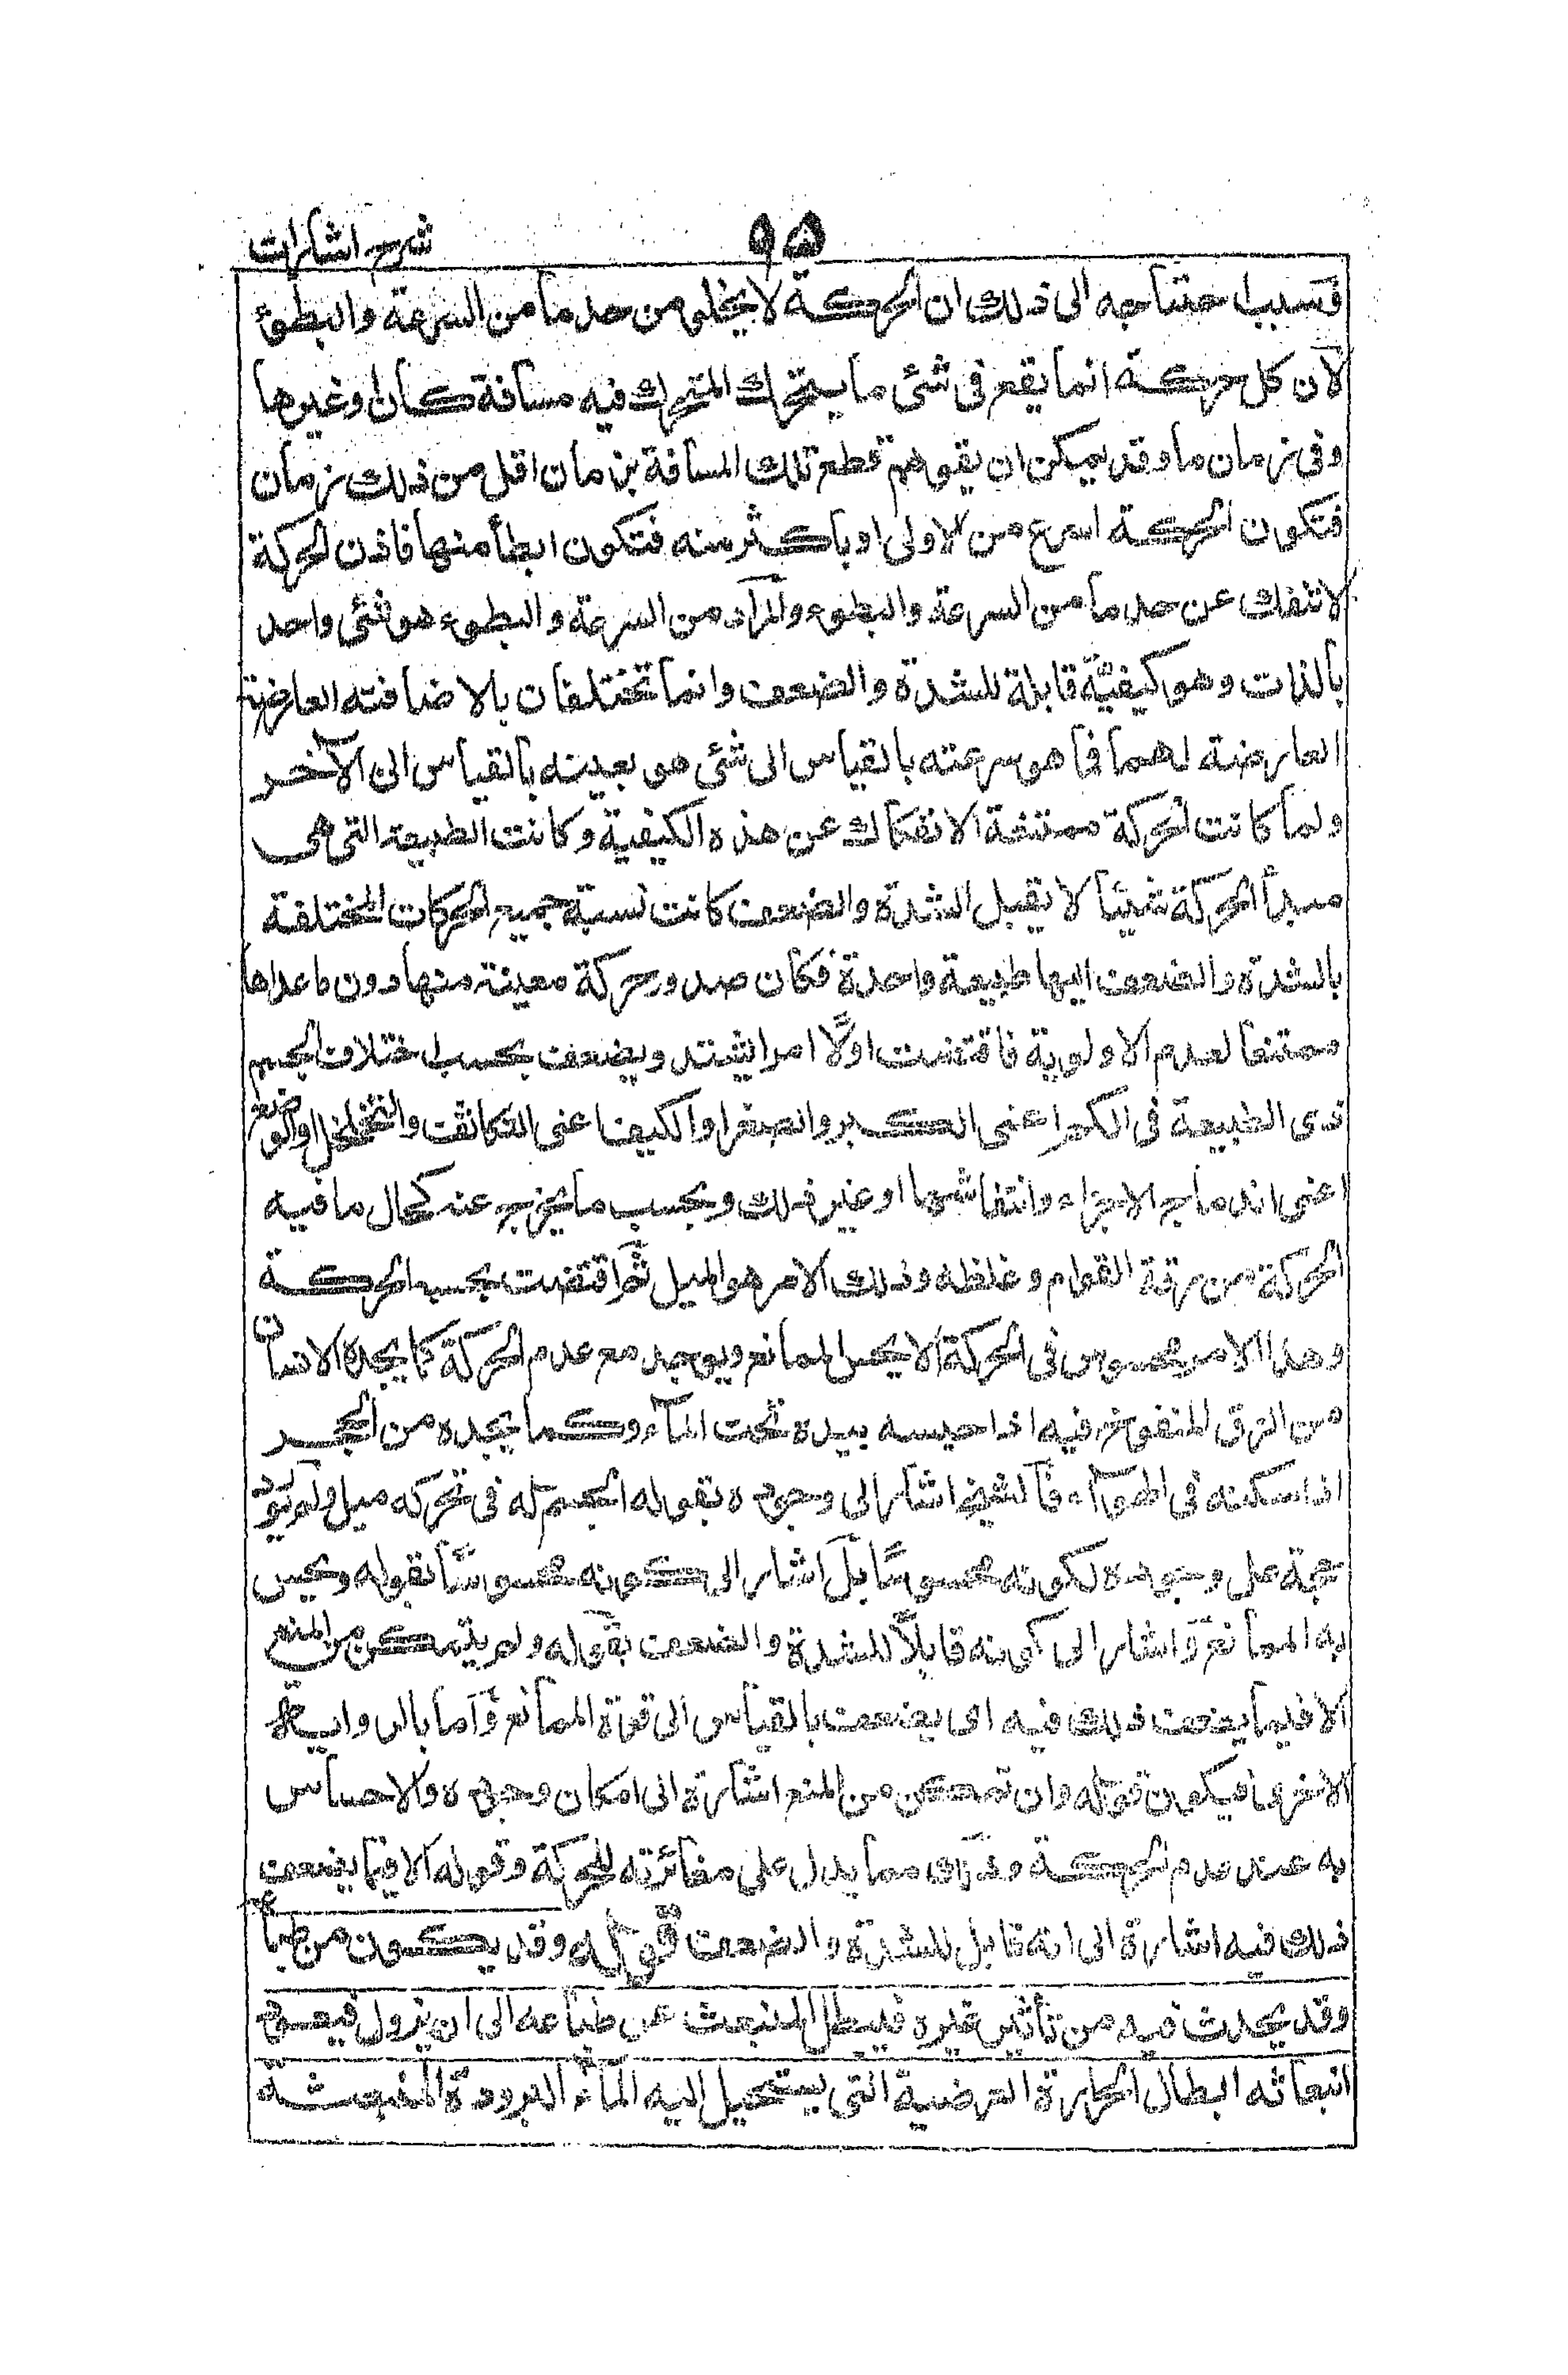 شرح اشارات
٩٥
فسبب احتياجه الى ذلك ان الحركة لا يخلو من حد ما من السرعة والبطوء
لان كل حركة انما يقع فى شئ ما يتحرك المتحرك فيه مسافة كان او غيرها
وفى زمان ما وقد يمكن ان يتوهم قطع تلك المسافة بزمان اقل من ذلك زمان
فتكون الحركة اسرع من الاولى او باكثر منه فتكون ابطأ منها فاذن الحركة
لا تنفك عن حد ما من السرعة والبطوء والمراد من السرعة والبطوء هو شئ واحد
بالذات وهو كيفيّة قابلة للشدة والضعف وانما تختلفان بالاضافته العارضة
العارضة لهما فما هو سرعته بالقياس الى شئ هو بعينه بالقياس الى الآخر
ولما كانت الحركة ممتنعة الانفكاك عن هذه الكيفية وكانت الطبيعة التى هى
مبدأ الحركة شيئا لا يقبل الشدة والضعف كانت نسبة جميع الحركات المختلفة
بالشدة والضعف اليها طبيعة واحدة فكان صدور حركة معينة منها دون ما عداها
ممتنعا لعدم الاولوية فاقتضت اولًا امرا يشتد ويضعف بحسب اختلاف الجسم
ذى الطبيعة فى الكم اعنى الكبر والصغر او الكيف اعنى التكاثف والتخلخل او الوضع
اعنى اندماج الاجزاء وانتفاشها او غير ذلك وبحسب ما يخرج عنه كحال ما فيه
الحركة من رقة القوام وغلظه وذلك الامر هو الميل ثم اقتضت بحسبه الحركة
وهذا الامر محسوس فى الحركة الا يحس الممانع ويوجد مع عدم الحركة كما يجده الانسان
من الزق المنفوخ فيه اذا حبسه بيده تحت المآء وكما يجده من الحجر
اذا سكنه فى الهوآء فالشيخ اشار الى وجوده بقوله الجسم له فى تحركه ميل ولم يورد
حجة على وجوده لكونه محسوسًا بل اشار الى كونه محسوسًا بقوله ويحس
به الممانع واشار الى كونه قابلًا للشدة والضعف بقوله ولم يتمكن من المنع
الا فيما يضعف ذلك فيه اى يضعف بالقياس الى قوة الممانع واما بالرواية
الاخرى فيكون قوله وان تمكن من المنع اشارة الى امكان وجوده والاحساس
به عند عدم الحركة وذلك مما يدل على مغائرته للحركة وقوله الا فيما يضعف
ذلك فيه اشارة الى انه قابل للشدة والضعف قوله وقد يكون من طباعه
وقد يحدث فيه من تأثير غيره فيبطل المنبعث عن طباعه الى ان يزول فيعود
انبعاثه ابطال الحرارة العرضية التى يستحيل اليه المآء البرودة المنبعثة